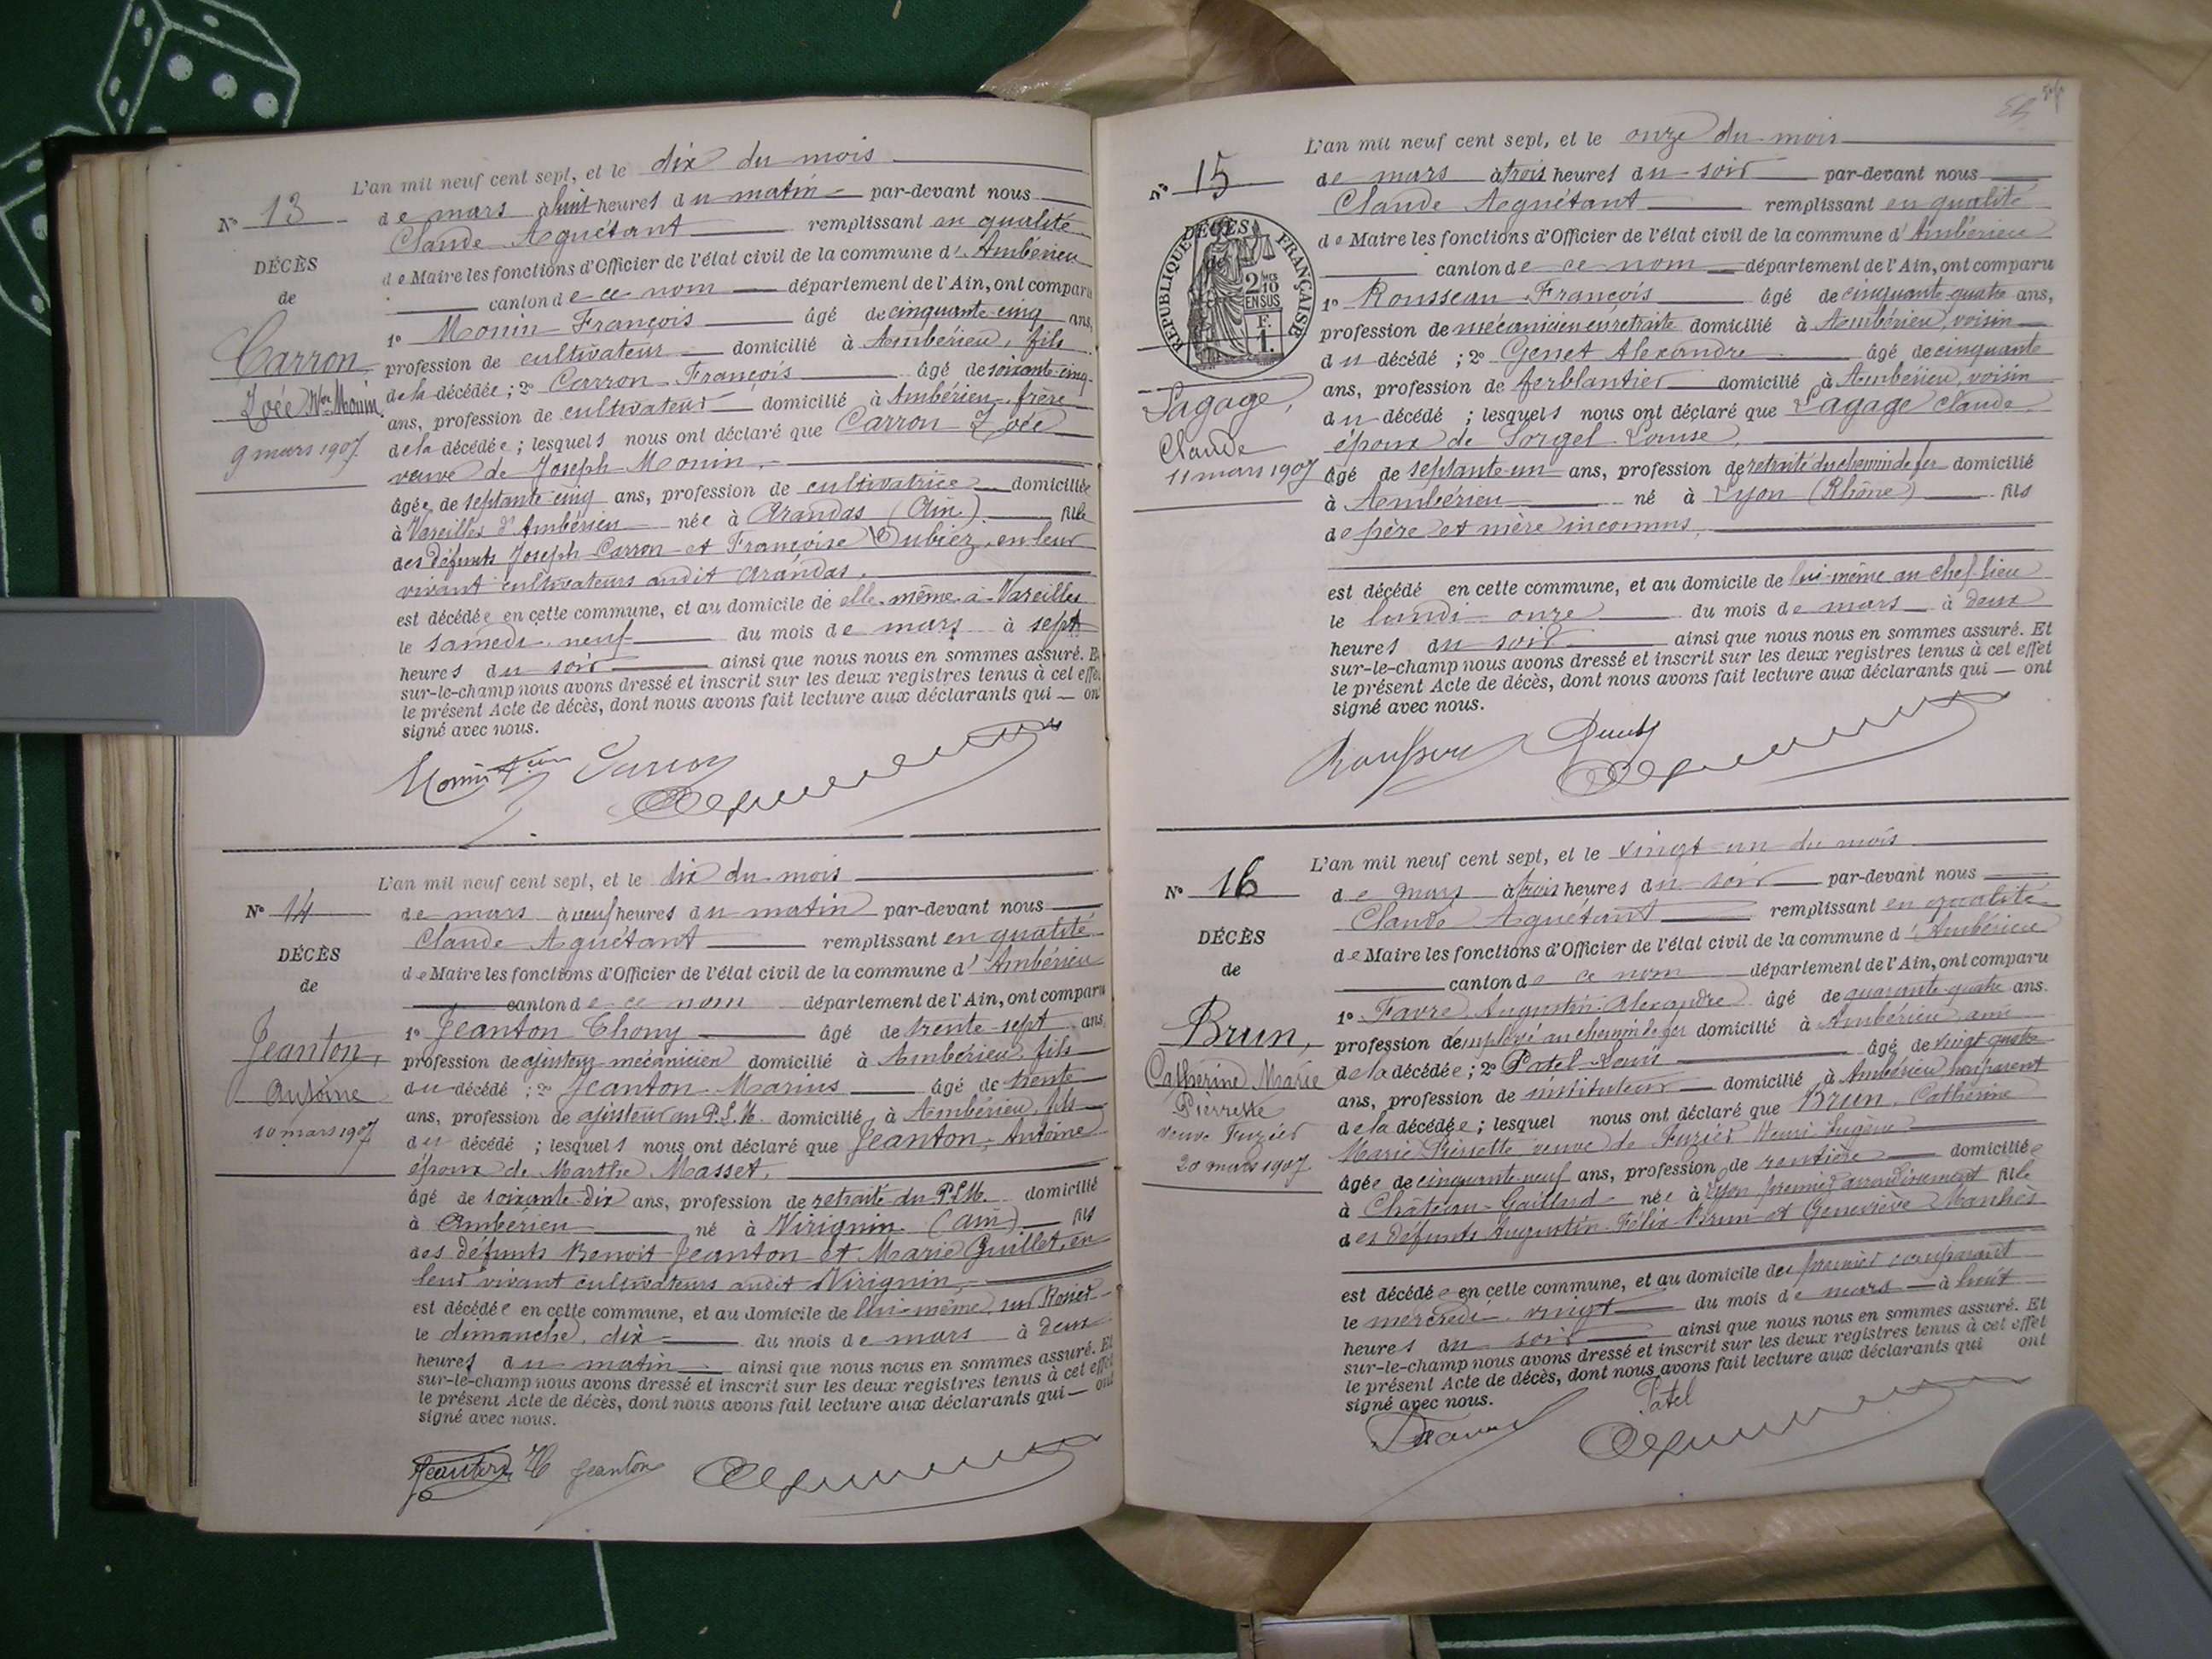 L'an mil neuf cent sept, et le dix du mois
N° 13
de mars à huit heures du matin par-devant nous
Claude Aguétant remplissant en qualité
DÉCÈS
de Maire les fonctions d'Officier de l'état civil de la commune d'Ambérieu
de
canton de ce nom département de l'Ain, ont comparu
1° Monin François âgé de cinquante cinq ans,
Carron
profession de cultivateur domicilié à Ambérieu, fils
Zoée Vve Monin
de la décédée ; 2° Carron François âgé de soixante-cinq
ans, profession de cultivateur domicilié à Ambérieu, frère
9 mars 1907
de la décédée ; lesquels nous ont déclaré que Carron Zoée
veuve de Joseph Monin.
âgée de septante cinq ans, profession de cultivatrice domiciliée
à Vareilles d'Ambérieu née à Arandas (Ain) fille
des défunts Joseph Carron et Françoise Dubiez, en leur
vivant cultivateurs audit Arandas.
est décédée en cette commune, et au domicile de elle-même à Vareilles
le samedi neuf du mois de mars à sept
heures du soir ainsi que nous nous en sommes assuré. Et
sur-le-champ nous avons dressé et inscrit sur les deux registres tenus à cet effet
le présent Acte de décès, dont nous avons fait lecture aux déclarants qui — ont
signé avec nous.
Monin Carron
L'an mil neuf cent sept, et le dix du mois
N° 14
de mars à neuf heures du matin par-devant nous
Claude Aguétant remplissant en qualité
DÉCÈS
de Maire les fonctions d'Officier de l'état civil de la commune d'Ambérieu
de
canton de ce nom département de l'Ain, ont comparu
1° Jeanton Thony âgé de trente-sept ans
Jeanton,
profession de ajusteur-mécanicien domicilié à Ambérieu, fils
Antoine
du décédé ; 2° Jeanton Marius âgé de trente
10 mars 1907
ans, profession de ajusteur au P.L.M. domicilié à Ambérieu, fils
du décédé ; lesquels nous ont déclaré que Jeanton, Antoine
époux de Marthe Masset.
âgé de soixante-dix ans, profession de retraité du P.L.M. domicilié
à Ambérieu né à Virignin (Ain) fils
des défunts Benoit Jeanton et Marie Guillet, en
leur vivant cultivateurs audit Virignin,
est décédée en cette commune, et au domicile de lui-même,
le dimanche, dix du mois de mars à deux
heures du matin ainsi que nous nous en sommes assuré. Et
sur-le-champ nous avons dressé et inscrit sur les deux registres tenus à cet effet
le présent Acte de décès, dont nous avons fait lecture aux déclarants qui — ont
signé avec nous.
Jeanton Jeanton
L'an mil neuf cent sept, et le onze du mois
N° 15
de mars à trois heures du soir par-devant nous
Claude Aguétant remplissant en qualité
DÉCÈS
RÉPUBLIQUE FRANÇAISE
2/10 EN SUS
F. 1.
de Maire les fonctions d'Officier de l'état civil de la commune d'Ambérieu
canton de ce nom département de l'Ain, ont comparu
1° Rousseau François âgé de cinquante-quatre ans,
profession de mécanicien en retraite domicilié à Ambérieu, voisin
du décédé ; 2° Genet Alexandre âgé de cinquante
ans, profession de ferblantier domicilié à Ambérieu, voisin
Lagage,
du décédé ; lesquels nous ont déclaré que Lagage Claude
Claude
époux de Sorgel Louise,
11 mars 1907
âgé de septante-un ans, profession de retraité du chemin de fer domicilié
à Ambérieu né à Lyon (Rhône) fils
de père et mère inconnus,
est décédé en cette commune, et au domicile de lui-même au chef-lieu
le lundi onze du mois de mars à deux
heures du soir ainsi que nous nous en sommes assuré. Et
sur-le-champ nous avons dressé et inscrit sur les deux registres tenus à cet effet
le présent Acte de décès, dont nous avons fait lecture aux déclarants qui — ont
signé avec nous.
L'an mil neuf cent sept, et le vingt un du mois
N° 16
de mars à trois heures du soir par-devant nous
Claude Aguétant remplissant en qualité
DÉCÈS
de Maire les fonctions d'Officier de l'état civil de la commune d'Ambérieu
de
canton de ce nom département de l'Ain, ont comparu
1° Favre Augustin Alexandre âgé de quarante-quatre ans.
Brun,
profession d'employé au chemin de fer domicilié à Ambérieu ami
de la décédée ; 2° Patel Louis âgé de vingt quatre
Catherine Marie
ans, profession de instituteur domicilié à Ambérieu non parent
Pierrette
de la décédée ; lesquel nous ont déclaré que Brun, Catherine
veuve Fuzier
Marie Pierrette veuve de Fuzier Henri Eugène
20 mars 1907
âgée de cinquante-neuf ans, profession de rentière domiciliée
à Château-Gaillard née à Lyon premier arrondissement fille
des défunts Augustin-Félix Brun et Geneviève Manhès
est décédée en cette commune, et au domicile du premier comparant
le mercredi vingt du mois de mars à huit
heures du soir ainsi que nous nous en sommes assuré. Et
sur-le-champ nous avons dressé et inscrit sur les deux registres tenus à cet effet
le présent Acte de décès, dont nous avons fait lecture aux déclarants qui ont
signé avec nous.
Patel